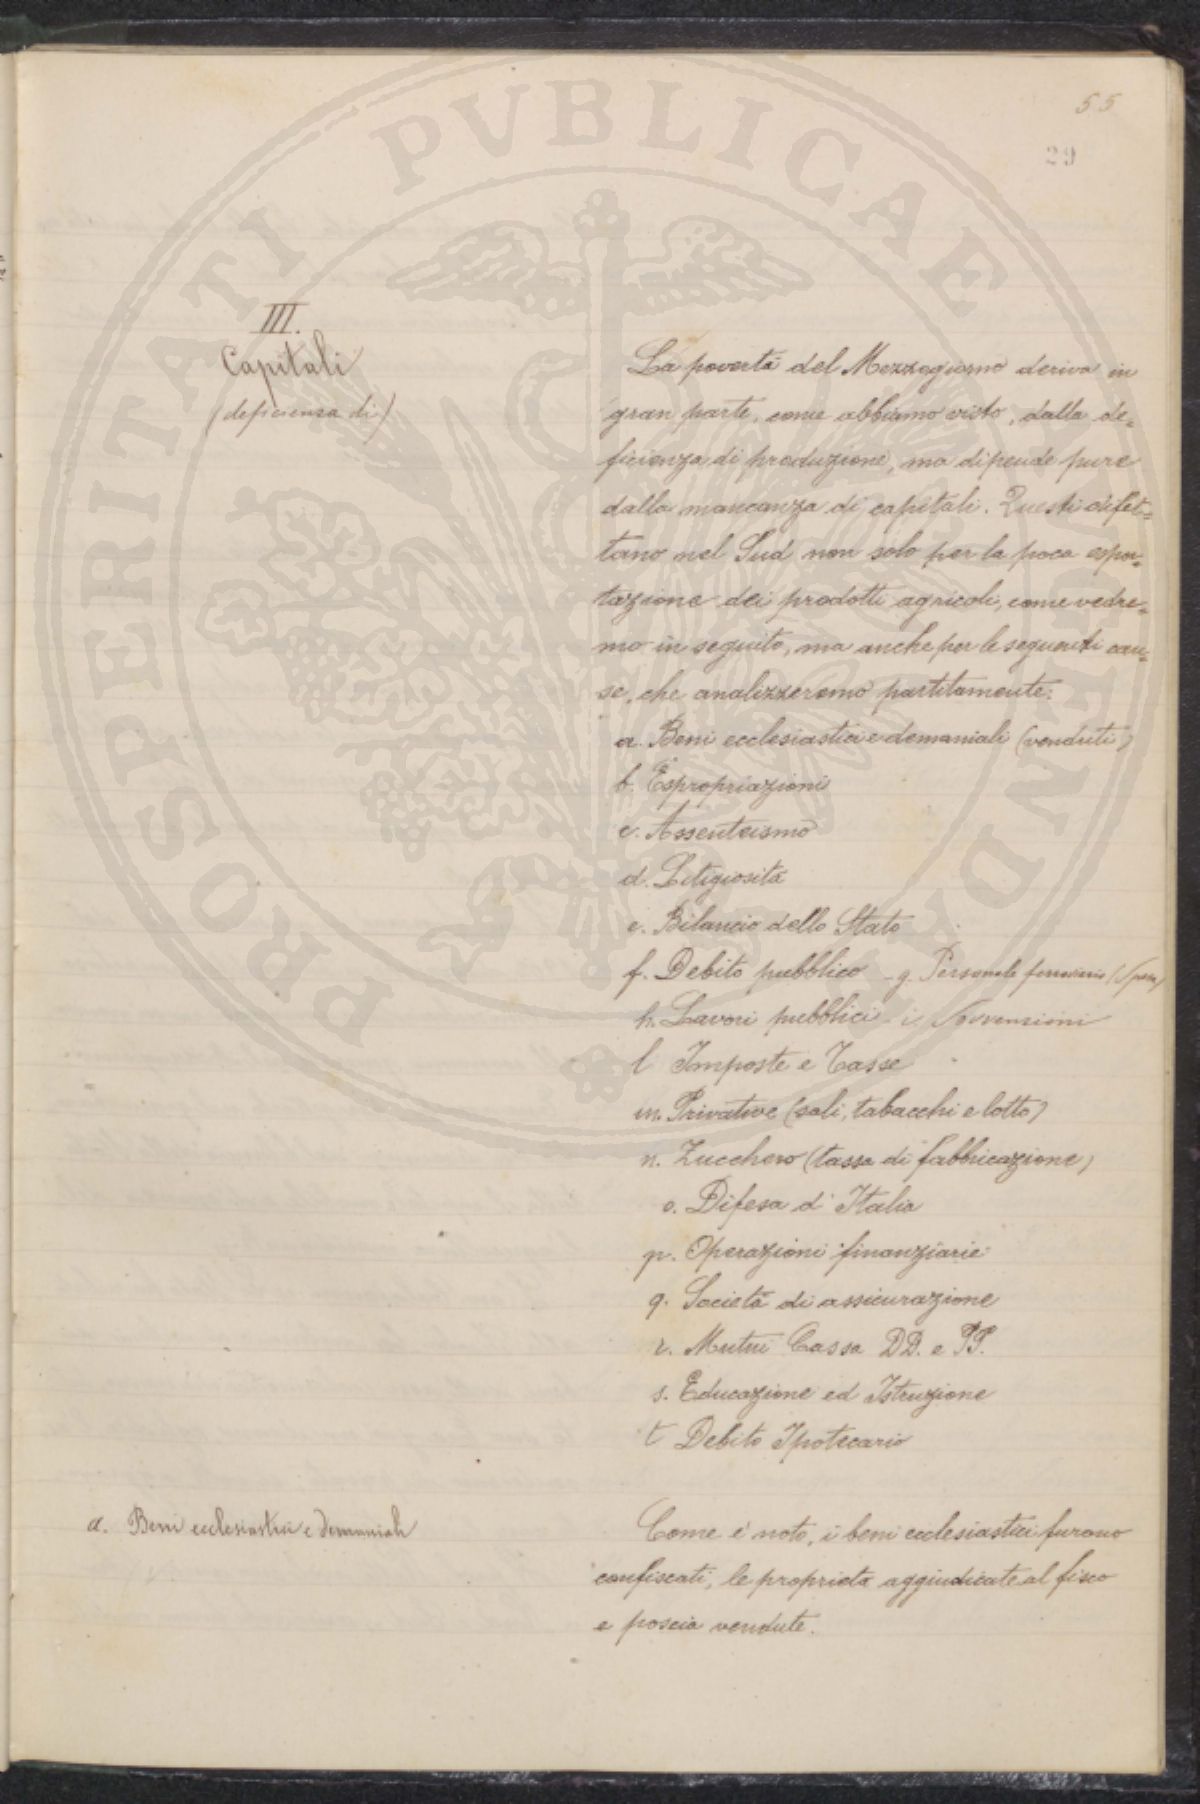 55
29
PROSPERITATI PUBLICAE AUGENDAE
III.
Capitali
(deficienza di)
La povertà del Mezzogiorno deriva in
gran parte, come abbiamo visto, dalla de-
ficienza di produzione, ma dipende pure
dalla mancanza di capitali. Questi difet-
tano nel Sud non solo per la poca espor-
tazione dei prodotti agricoli, come vedre-
mo in seguito, ma anche per le seguenti cau-
se, che analizzeremo partitamente:
a. Beni ecclesiastici e demaniali (venduti)
b. Espropriazioni
c. Assenteismo
d. Litigiosità
e. Bilancio dello Stato
f. Debito pubblico - g. Personale ferroviario (Spese)
h. Lavori pubblici - i. Sovvenzioni
l Imposte e Tasse
m. Privative (sali, tabacchi e lotto)
n. Zucchero (tassa di fabbricazione)
o. Difesa d'Italia
p. Operazioni finanziarie
q. Società di assicurazione
r. Mutui Cassa DD. e PP.
s. Educazione ed Istruzione
t Debito Ipotecario
a. Beni ecclesiastici e demaniali
Come è noto, i beni ecclesiastici furono
confiscati, le proprietà aggiudicate al fisco
e poscia vendute.